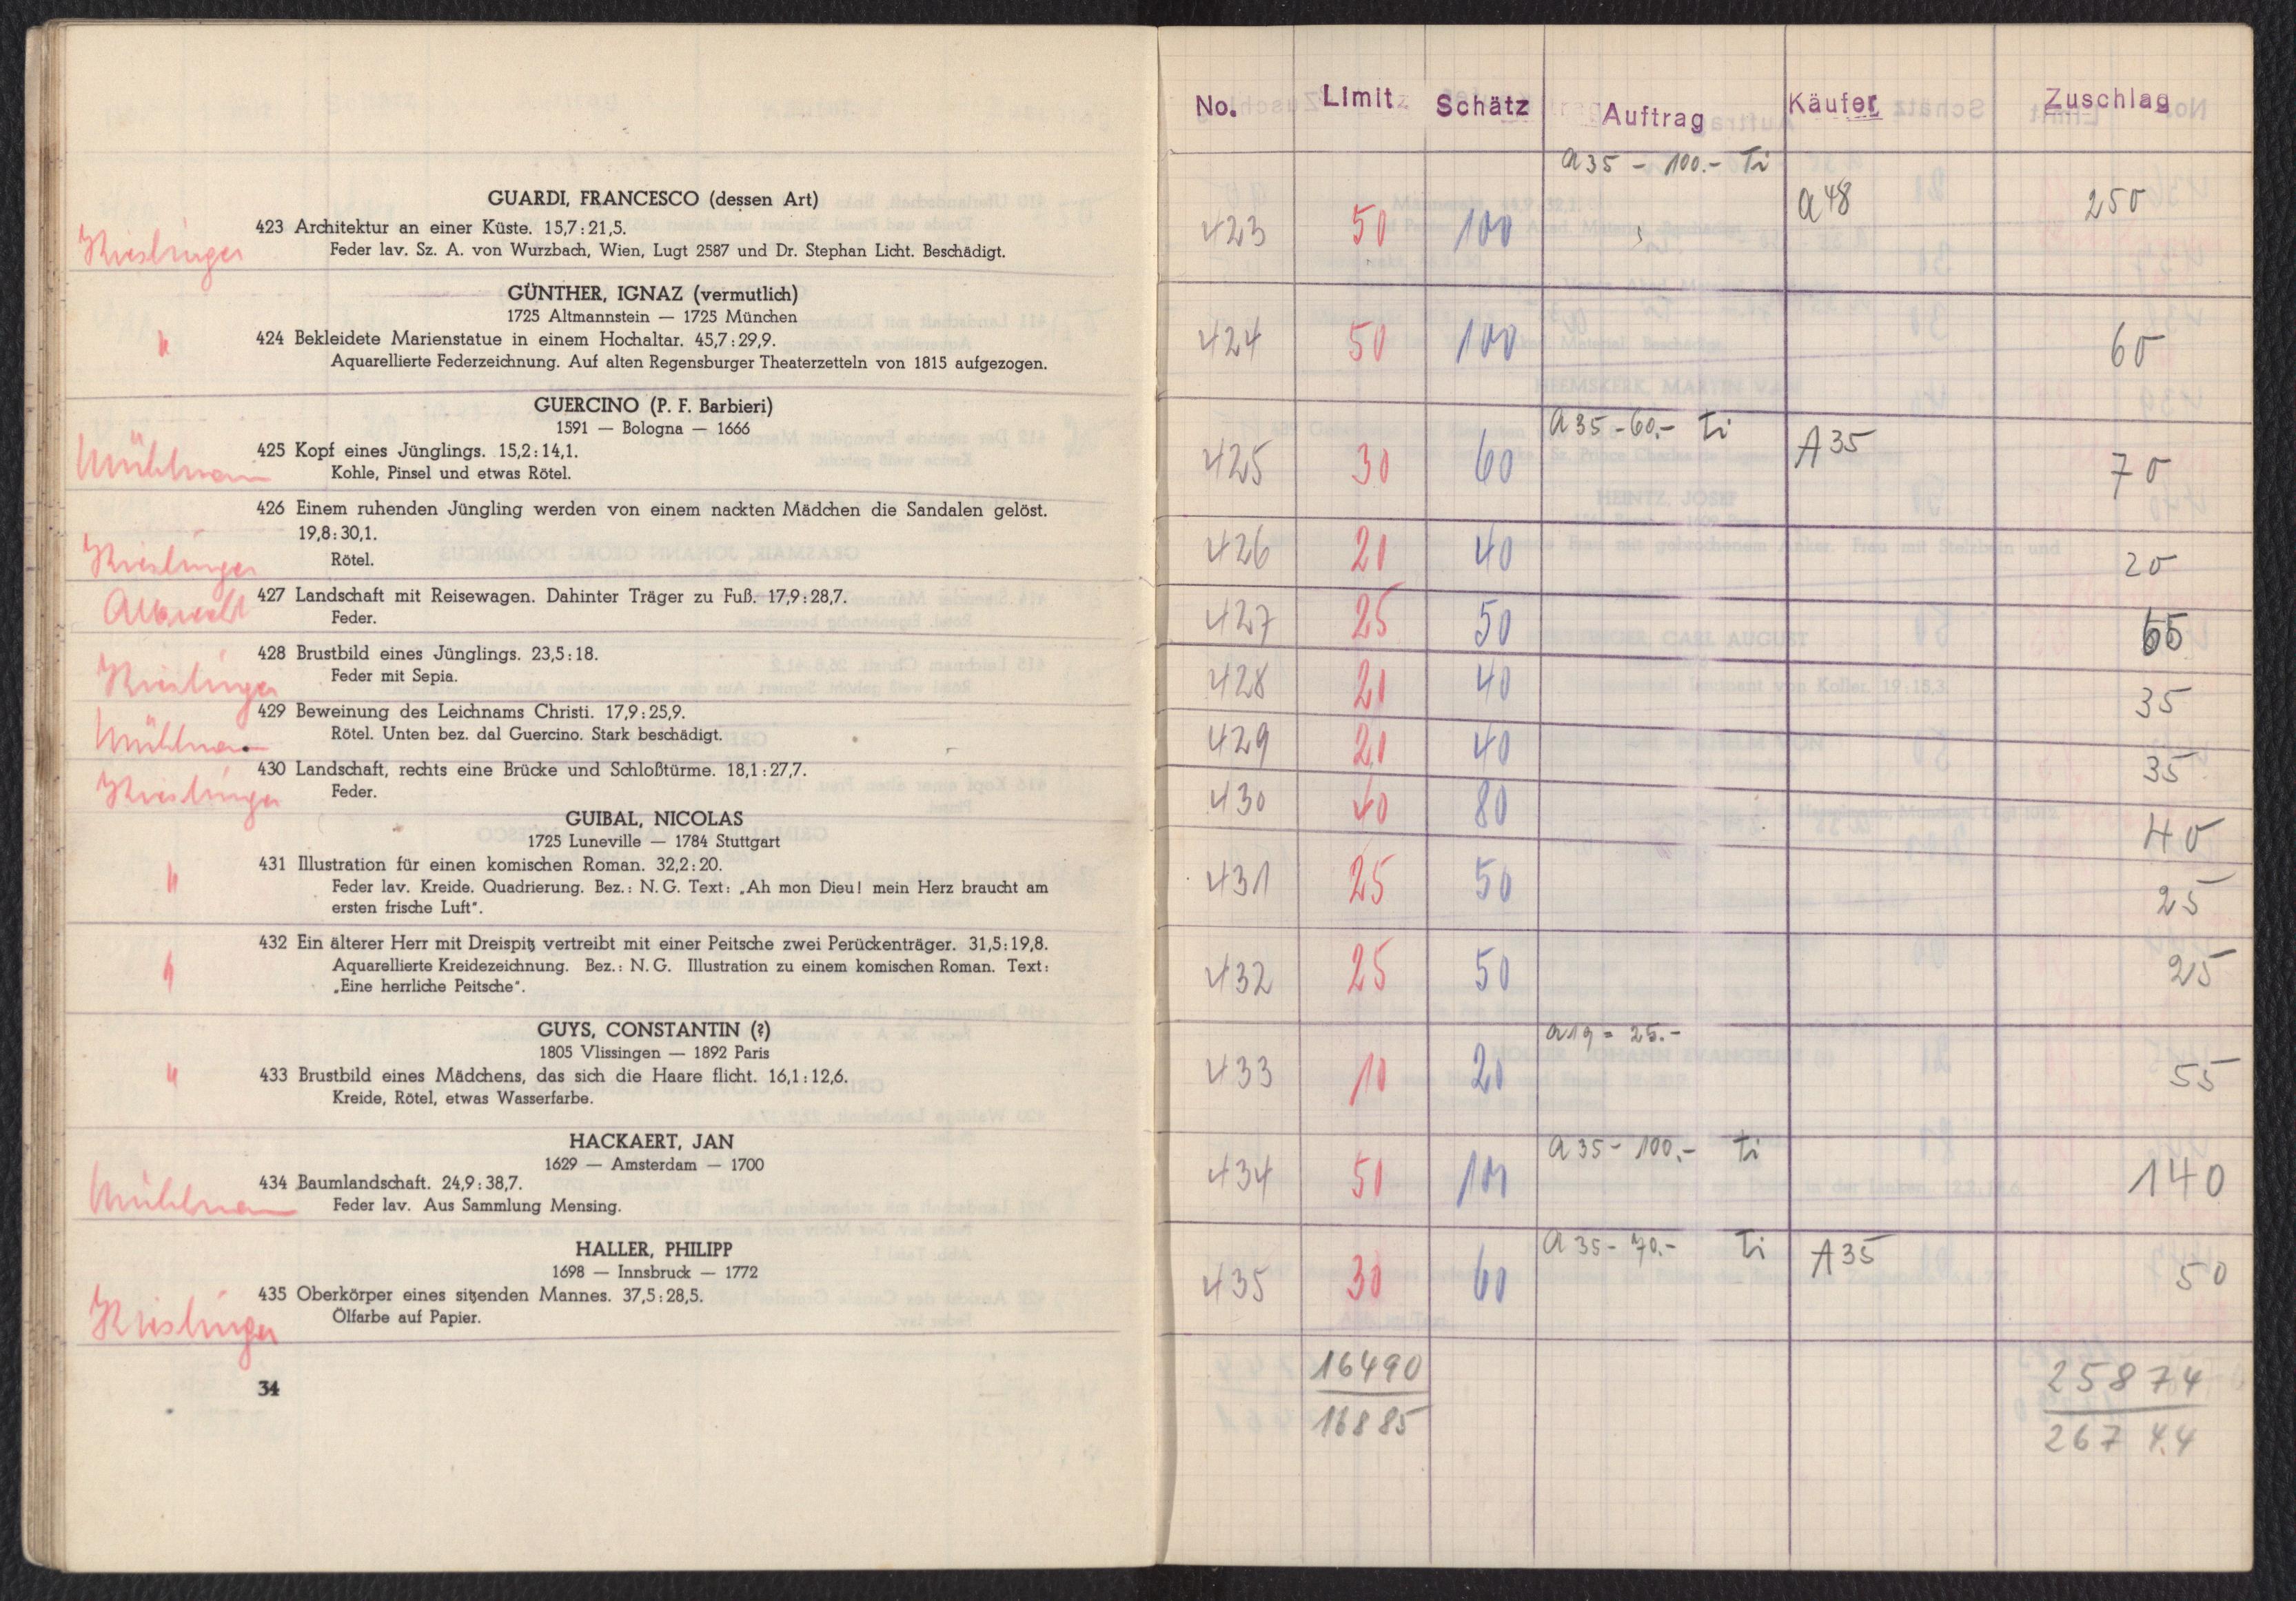 GUARDI, FRANCESCO (dessen Art)
423 Architektur an einer Küste. 15,7 : 21,5.
Feder lav. Sz. A. von Wurzbach, Wien, Lugt 2587 und Dr. Stephan Licht. Beschädigt.
GÜNTHER, IGNAZ (vermutlich)
1725 Altmannstein — 1725 München
424 Bekleidete Marienstatue in einem Hochaltar. 45,7 : 29,9.
Aquarellierte Federzeichnung. Auf alten Regensburger Theaterzetteln von 1815 aufgezogen.
GUERCINO (P. F. Barbieri)
1591 — Bologna — 1666
425 Kopf eines Jünglings. 15,2 : 14,1.
Kohle, Pinsel und etwas Rötel.
426 Einem ruhenden Jüngling werden von einem nackten Mädchen die Sandalen gelöst.
19,8 : 30,1.
Rötel.
427 Landschaft mit Reisewagen. Dahinter Träger zu Fuß. 17,9 : 28,7.
Feder.
428 Brustbild eines Jünglings. 23,5 : 18.
Feder mit Sepia.
429 Beweinung des Leichnams Christi. 17,9 : 25,9.
Rötel. Unten bez. dal Guercino. Stark beschädigt.
430 Landschaft, rechts eine Brücke und Schloßtürme. 18,1 : 27,7.
Feder.
GUIBAL, NICOLAS
1725 Luneville — 1784 Stuttgart
431 Illustration für einen komischen Roman. 32,2 : 20.
Feder lav. Kreide. Quadrierung. Bez.: N. G. Text: „Ah mon Dieu! mein Herz braucht am
ersten frische Luft“.
432 Ein älterer Herr mit Dreispitz vertreibt mit einer Peitsche zwei Perückenträger. 31,5 : 19,8.
Aquarellierte Kreidezeichnung. Bez.: N. G. Illustration zu einem komischen Roman. Text:
„Eine herrliche Peitsche“.
GUYS, CONSTANTIN (?)
1805 Vlissingen — 1892 Paris
433 Brustbild eines Mädchens, das sich die Haare flicht. 16,1 : 12,6.
Kreide, Rötel, etwas Wasserfarbe.
HACKAERT, JAN
1629 — Amsterdam — 1700
434 Baumlandschaft. 24,9 : 38,7.
Feder lav. Aus Sammlung Mensing.
HALLER, PHILIPP
1698 — Innsbruck — 1772
435 Oberkörper eines sitzenden Mannes. 37,5 : 28,5.
Ölfarbe auf Papier.
34
No. Limit Schätz Auftrag Käufer Zuschlag
a 35 - 100.- Ti
423 50 100 a 48 250
424 50 100 60
a 35 - 60.- Ti
425 30 60 A 35 70
426 20 40 20
427 25 50
428 20 40 35
429 20 40 35
430 40 80 40
431 25 50 25
432 25 50 25
a 19 = 25.-
433 10 20 55
a 35 - 100.- Ti
434 50 100 140
a 35 - 70.- Ti
435 30 60 A 35 50
16490 25874
16885 26744